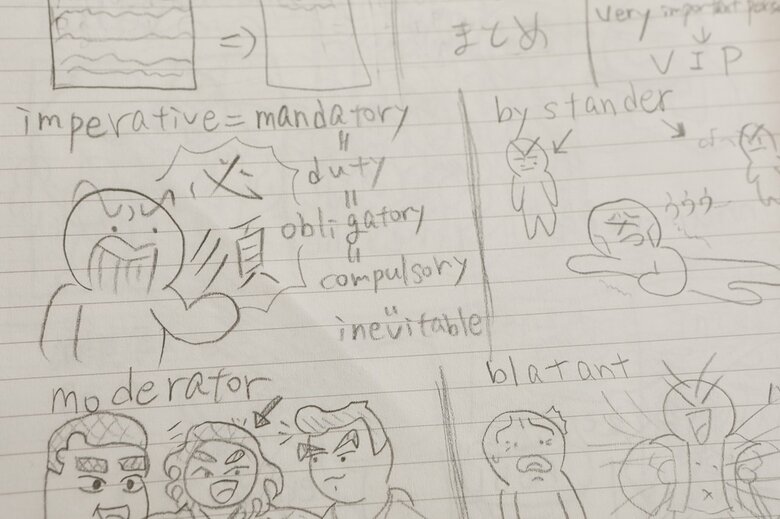 ⇒
まとめ
very important
↓
VIP
imperative = mandatory
=
duty
=
obligatory
=
compulsory
=
inevitable
必
須
bystander
ううう
moderator
blatant